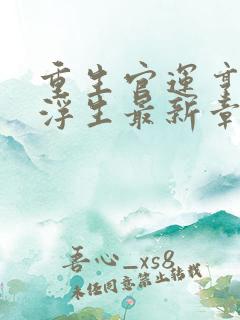 重生官运亨
浮生最新章
吾心_xs8
未经同意禁止转载